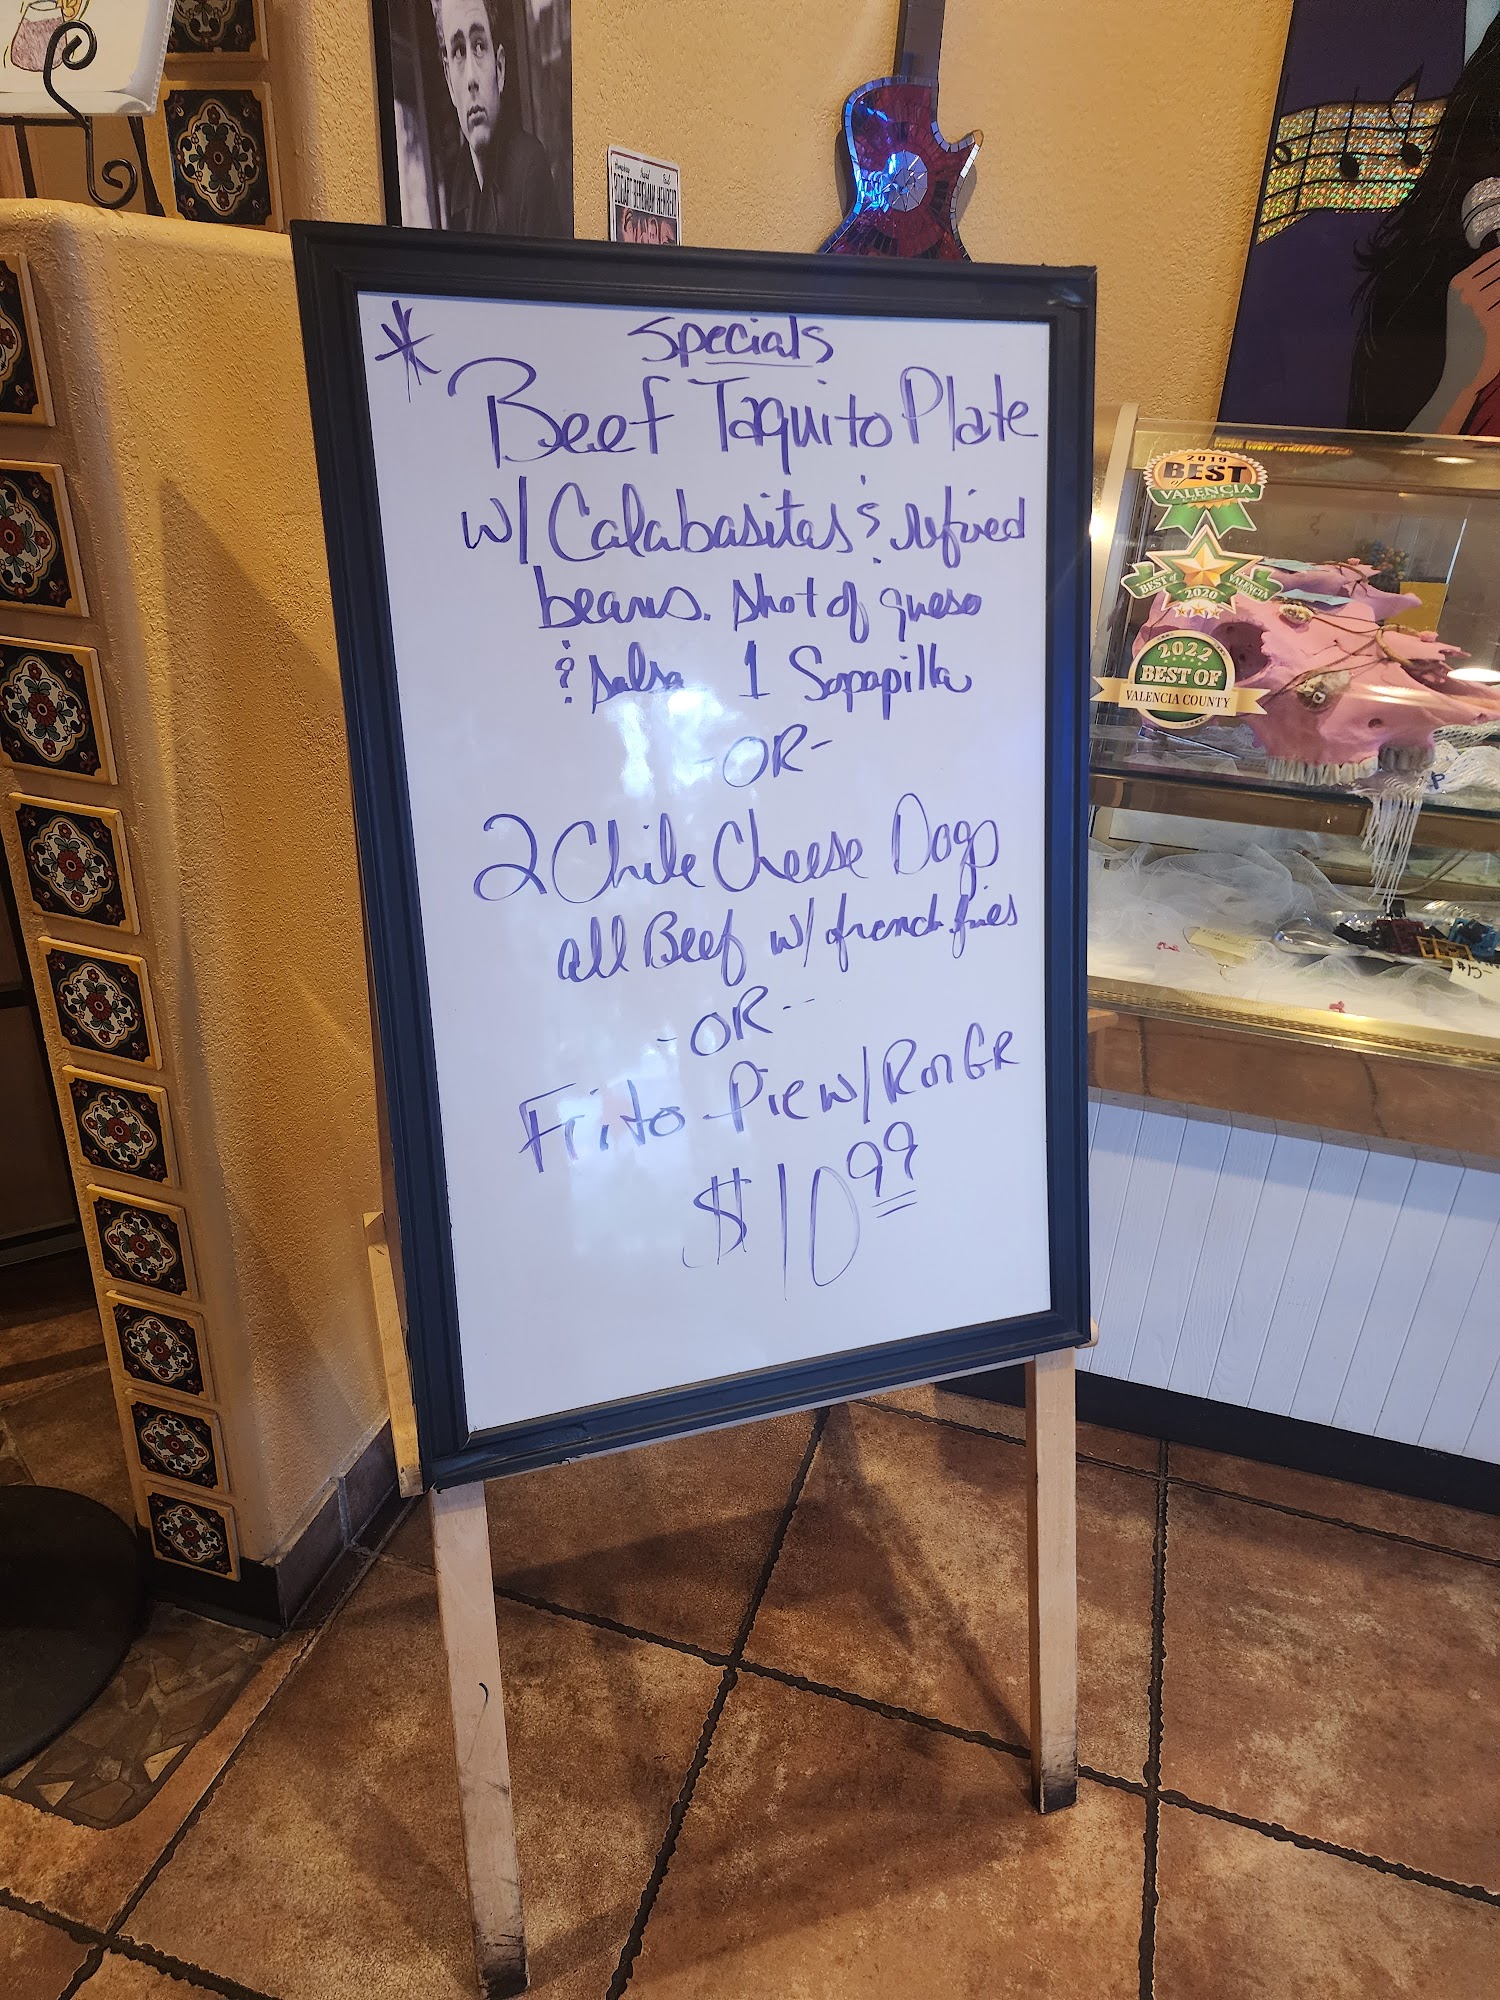 Specials
Beef Taquito Plate
w/ Calabasitas & refried
beans. shot of queso
& salsa 1 Sopapilla
-OR-
2 Chile Cheese Dogs
all Beef w/ french fries
-OR-
Frito Pie w/ R or GR
$10.99
BOGART BERGMAN HENREID
2019
BEST
of
VALENCIA
BEST of VALENCIA
2020
2022
BEST OF
VALENCIA COUNTY